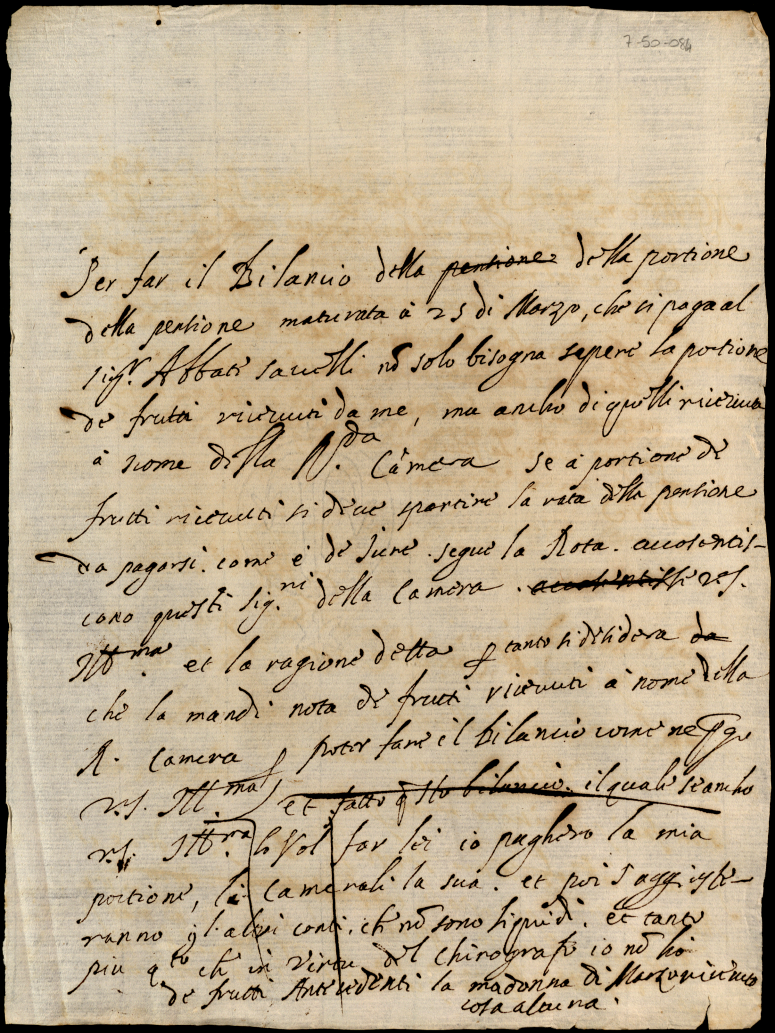 7-50-084
Per far il Bilancio della pensione della portione
della pensione maturata à 25 di Marzo, che si paga al
sigr. Abbate Savelli nō solo bisogna sapere la portione
de frutti ricevuti da me, ma ancho di quelli ricevuti
à nome della R.da Camera se à portione de
frutti ricevuti si deve spartire la rata della pensione
da pagarsi. come è de Jure. segue la Rota.
cono questi sig.ri della Camera. VS.
Ill.ma. et la ragione detta p tanto si desidera da
che la mandi nota de frutti ricevuti à nome della
R. Camera p poter fare il bilancio come ne
VS. Ill.ma et fatto qsto bilancio. il quale se ancho
VS. Ill.ma lo Vol far lei io pagherò la mia
portione, li Camerali la sua. et poi s'aggiuste-
ranno gl'altri conti, ch nō sono liquidi. et tanto
più qto ch in virtù del Chirografo io nō ho
de frutti Antecedenti la madonna di Marzo ricevuto
cosa alcuna.